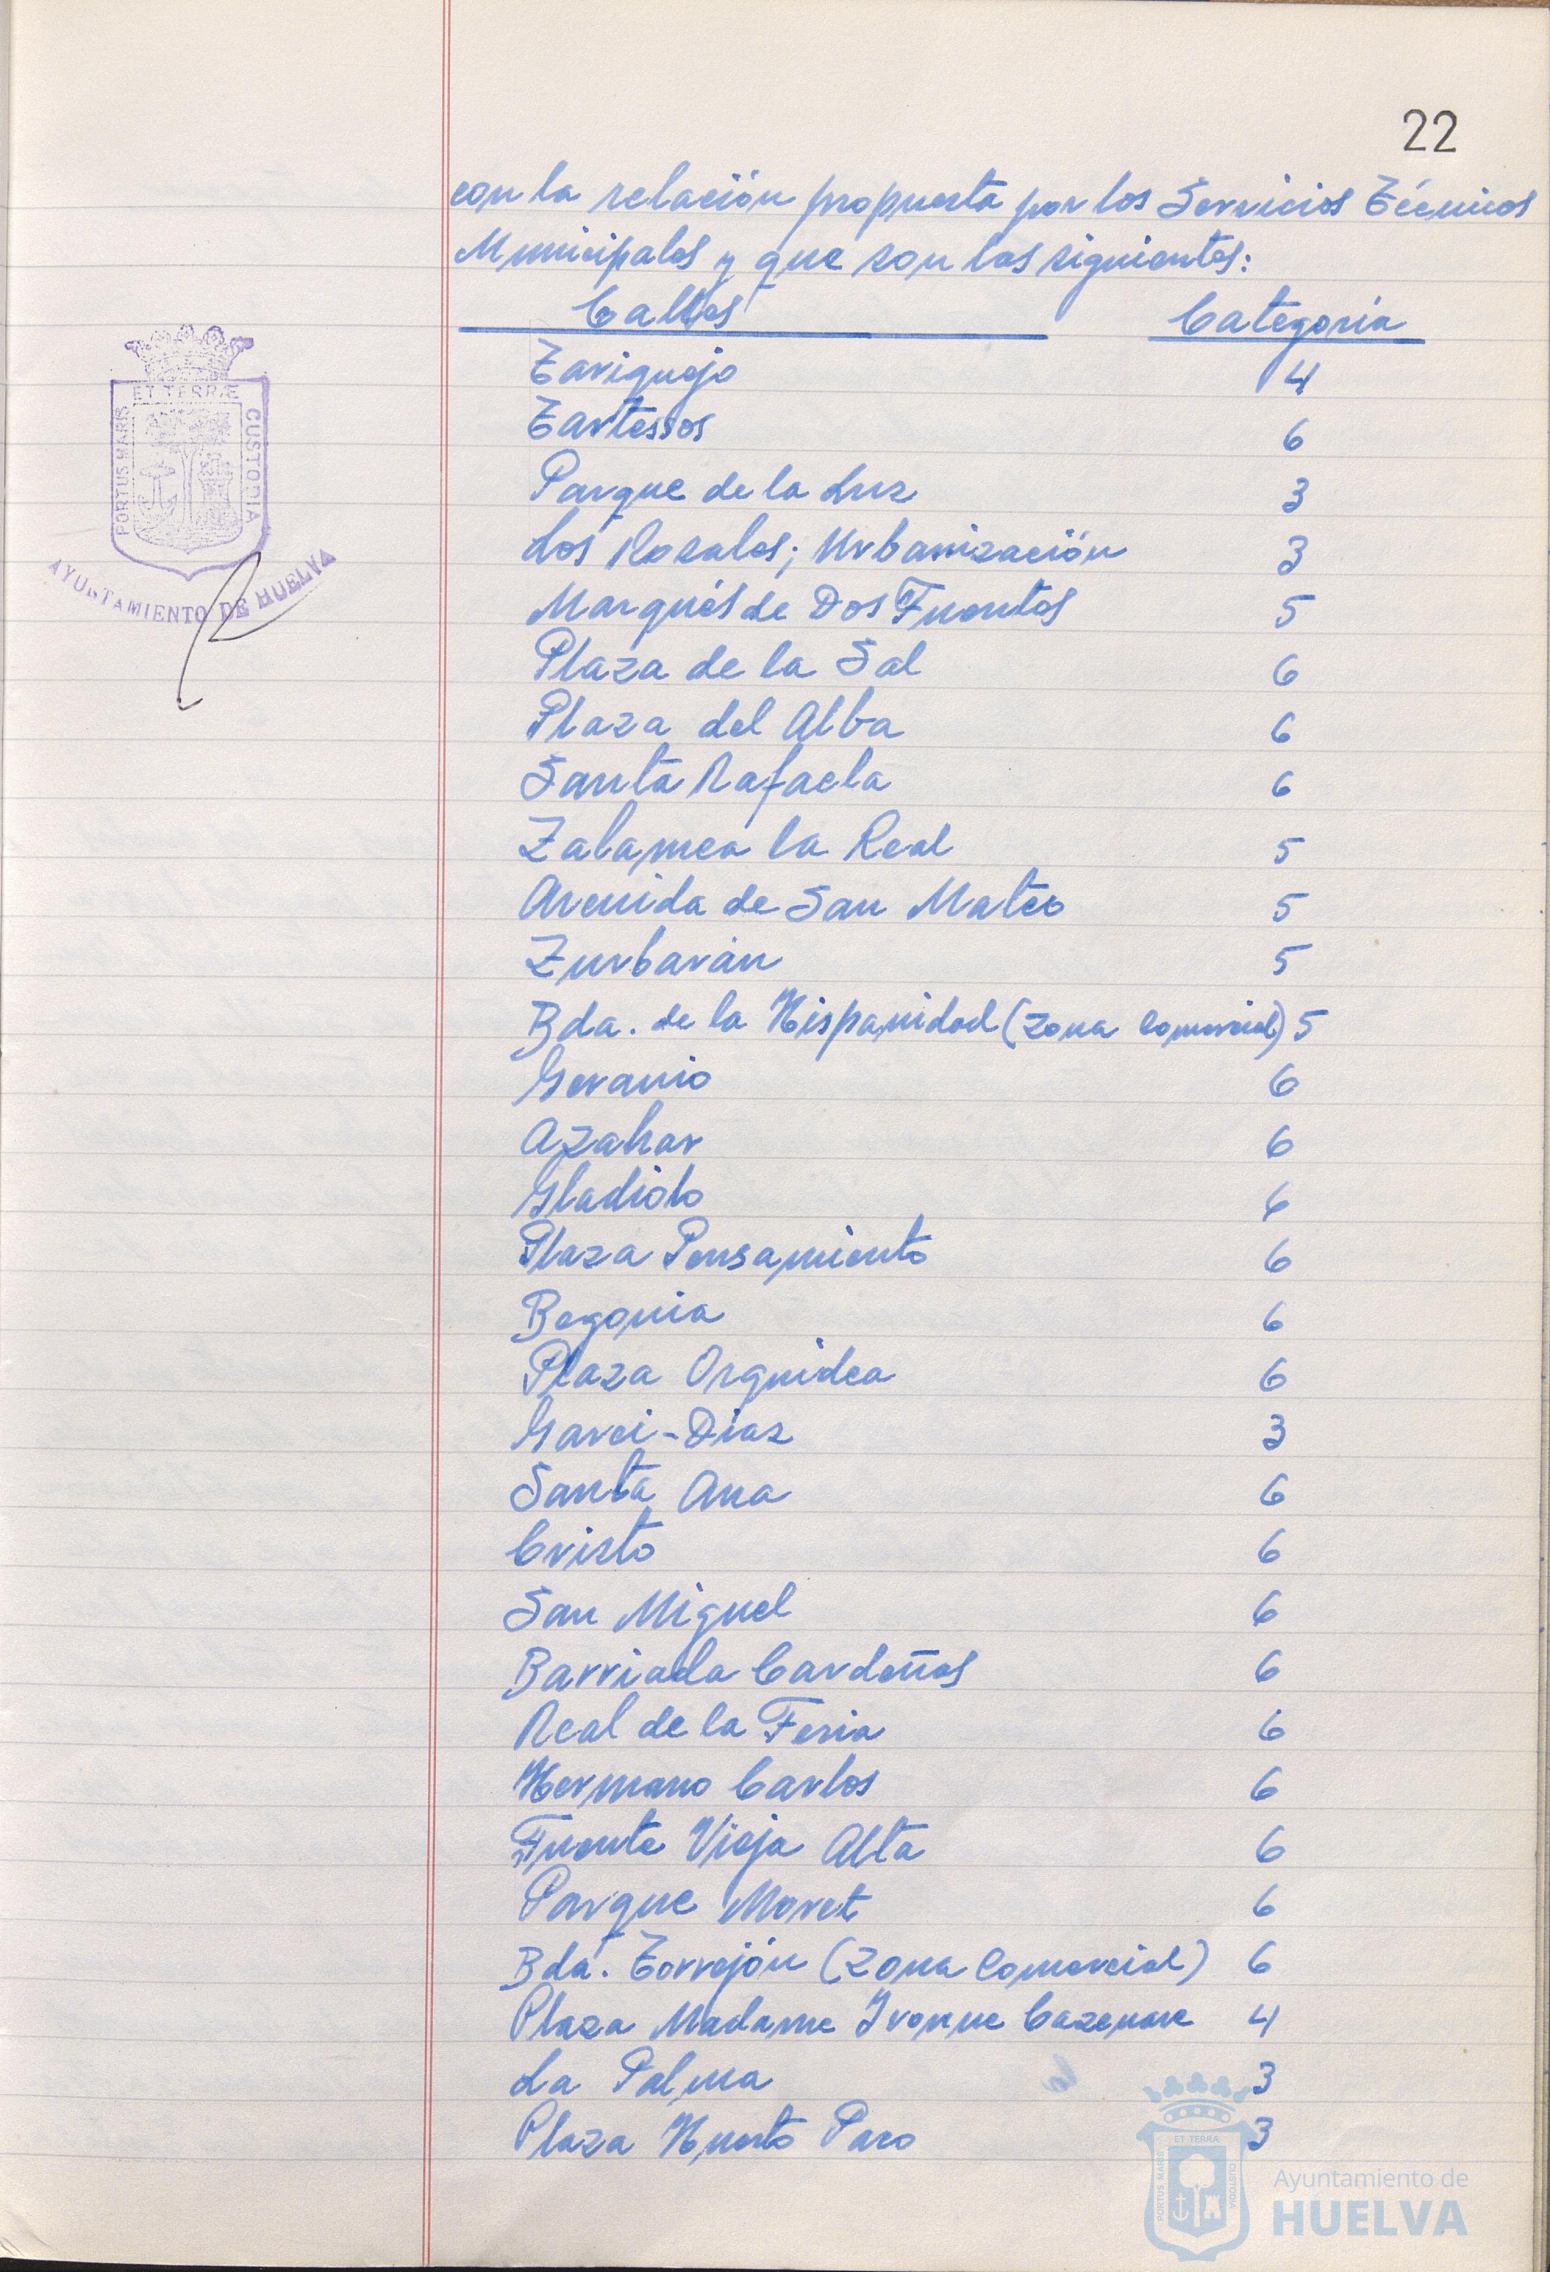 22
con la relación propuesta por los Servicios Técnicos
Municipales y que son las siguientes:
Calles Categoría
Tariquejo 4
Tartessos 6
Parque de la Luz 3
Los Rosales; Urbanización 3
Marqués de Dos Fuentes 5
Plaza de la Sal 6
Plaza del Alba 6
Santa Rafaela 6
Zalamea la Real 5
Avenida de San Mateo 5
Zurbarán 5
Bda. de la Hispanidad (zona comercial) 5
Geranio 6
Azahar 6
Gladiolo 6
Plaza Pensamiento 6
Begonia 6
Plaza Orquidea 6
Garci-Diaz 3
Santa Ana 6
Cristo 6
San Miguel 6
Barriada Cardeñas 6
Real de la Feria 6
Hermano Carlos 6
Fuente Vieja Alta 6
Parque Moret 6
Bda. Torrejón (zona Comercial) 6
Plaza Madame Ivonne Cazenave 4
La Palma 3
Plaza Huerto Paco 3
PORTUS MARIS ET TERRÆ CUSTODIA
AYUNTAMIENTO DE HUELVA
PORTUS MARIS ET TERRA CUSTODIA
Ayuntamiento de
HUELVA